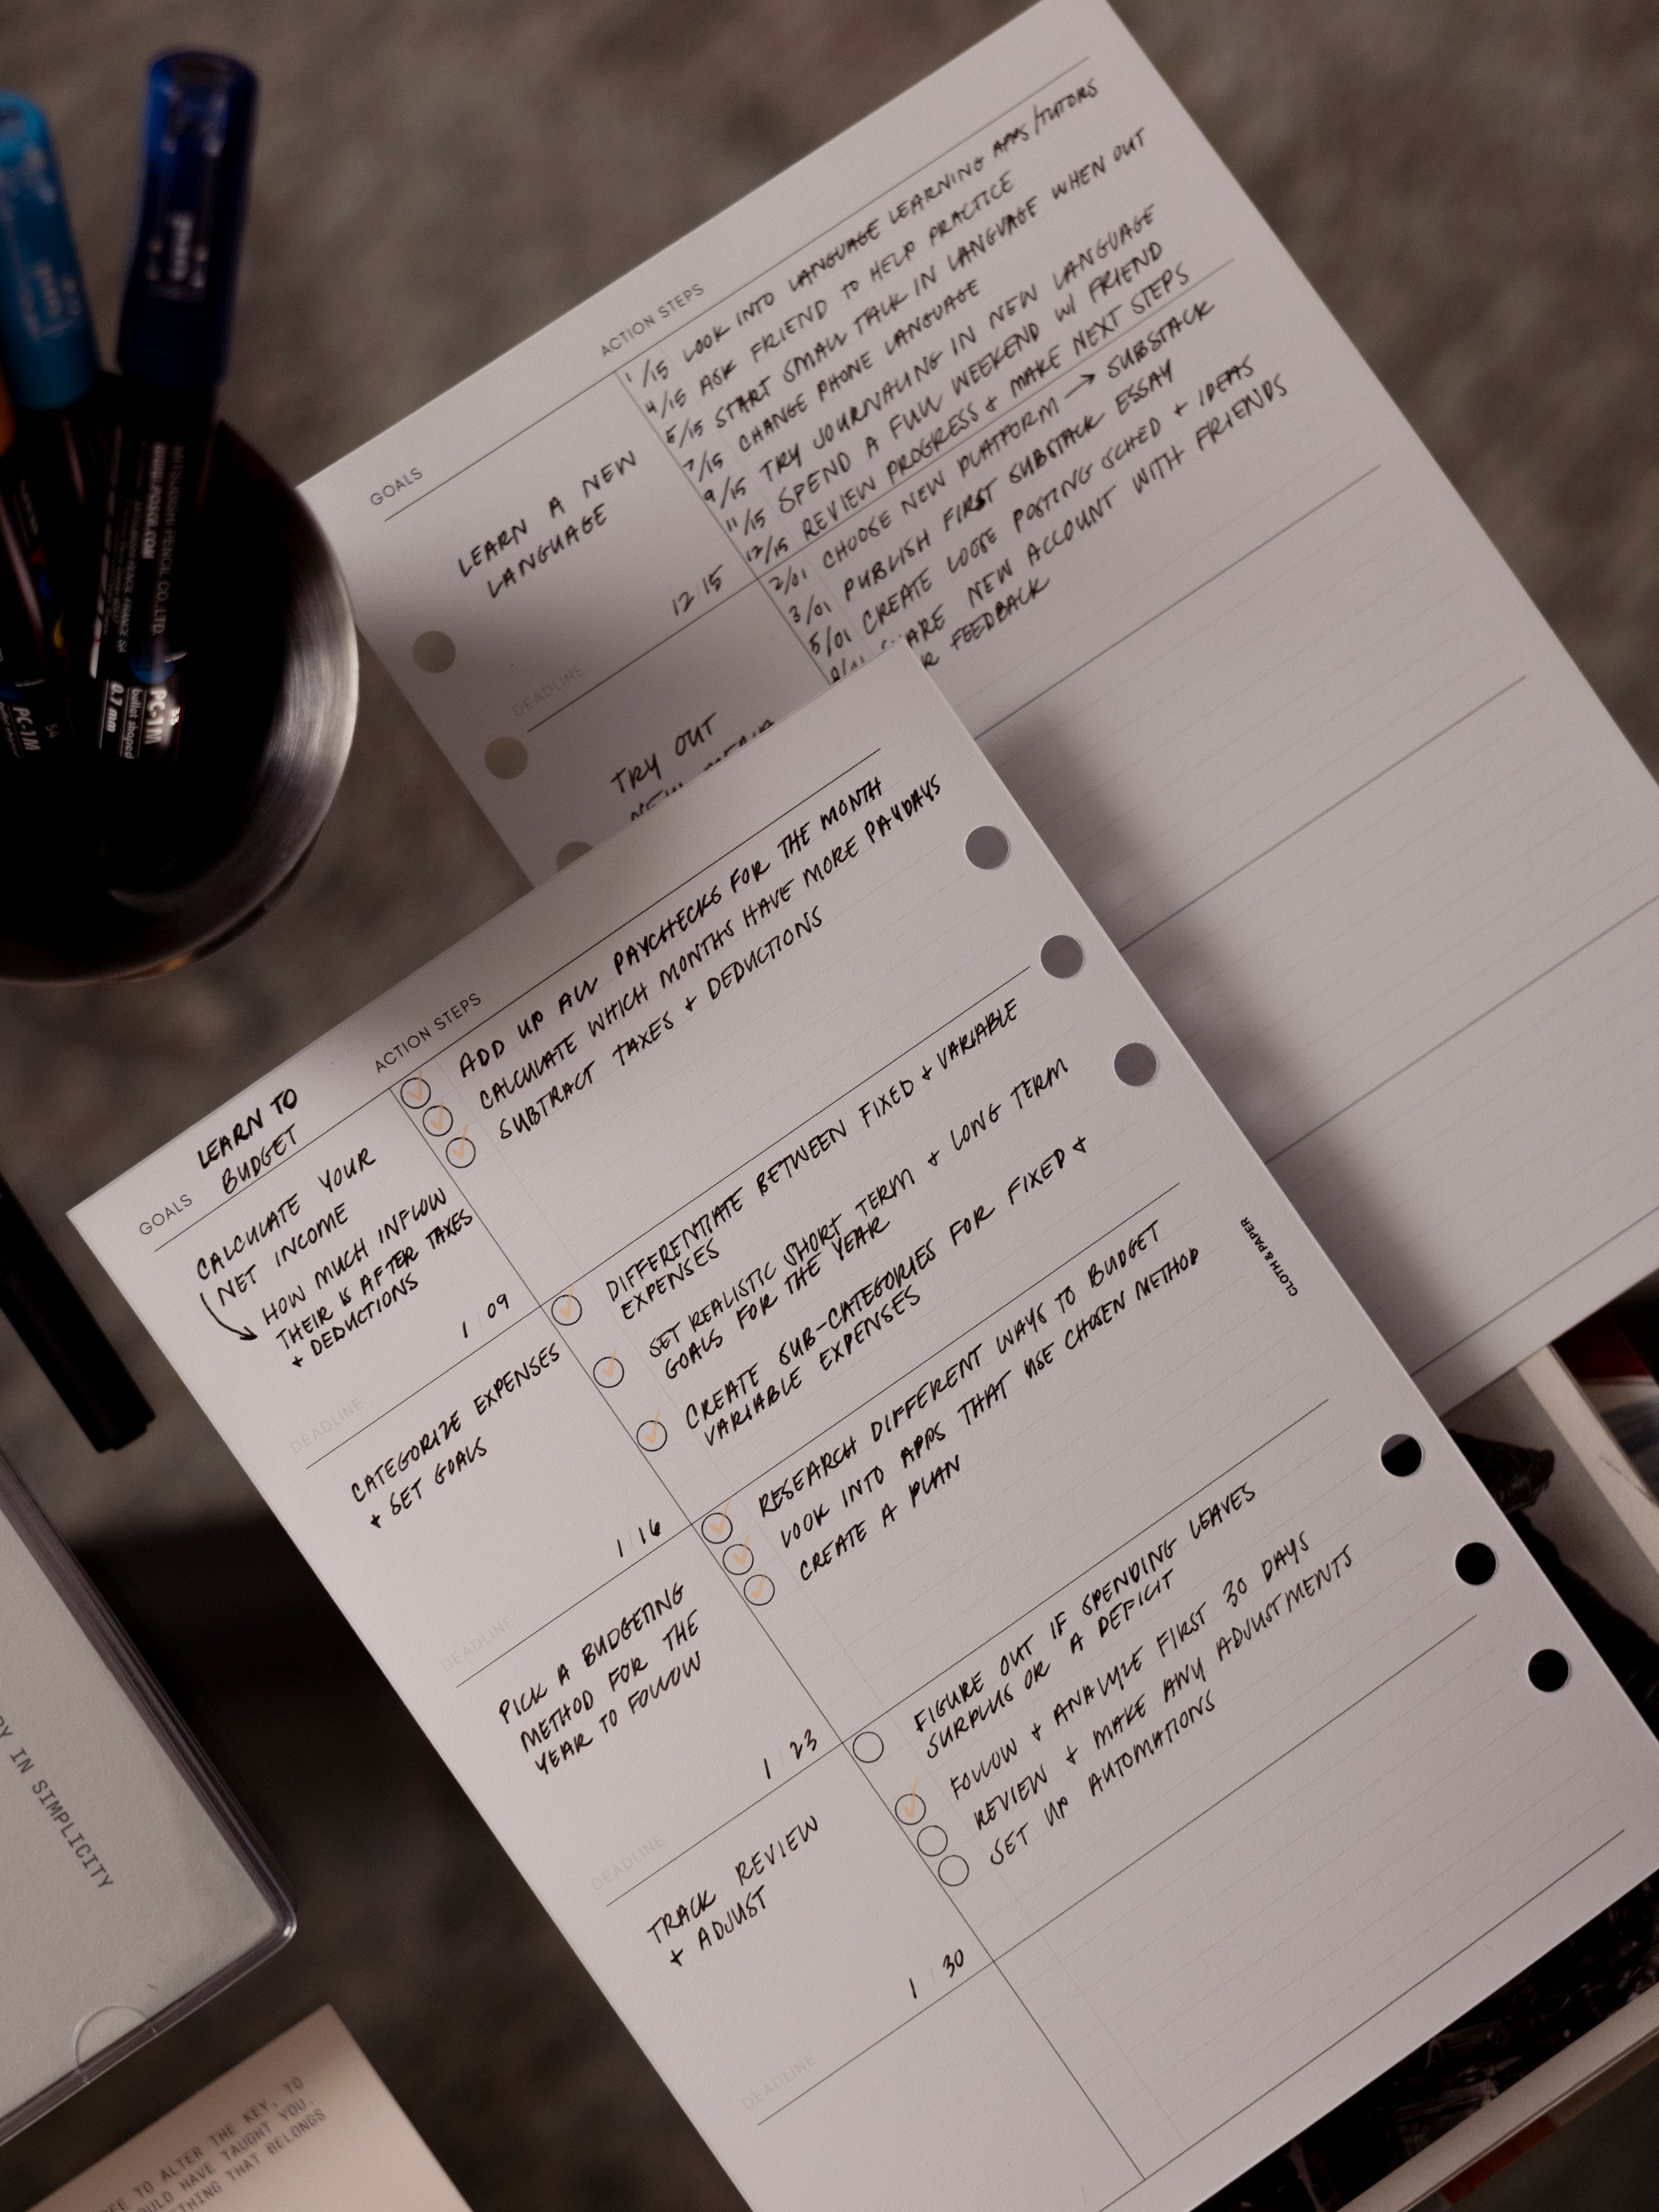 ACTION STEPS
1/15 LOOK INTO LANGUAGE LEARNING APPS/TUTORS
4/15 ASK FRIEND TO HELP PRACTICE
5/15 START SMALL TALK IN LANGUAGE WHEN OUT
7/15 CHANGE PHONE LANGUAGE
9/15 TRY JOURNALING IN NEW LANGUAGE
11/15 SPEND A FULL WEEKEND W/ FRIEND
12/15 REVIEW PROGRESS & MAKE NEXT STEPS
GOALS
LEARN A NEW
LANGUAGE
12/15
DEADLINE
2/01 CHOOSE NEW PLATFORM → SUBSTACK
3/01 PUBLISH FIRST SUBSTACK ESSAY
5/01 CREATE LOOSE POSTING SCHED + IDEAS
NEW ACCOUNT WITH FRIENDS
FEEDBACK
TRY OUT
GOALS
LEARN TO
BUDGET
ACTION STEPS
CALCULATE YOUR
NET INCOME
HOW MUCH INFLOW
THEIR IS AFTER TAXES
+ DEDUCTIONS
1/09
DEADLINE
ADD UP ALL PAYCHECKS FOR THE MONTH
CALCULATE WHICH MONTHS HAVE MORE PAYDAYS
SUBTRACT TAXES + DEDUCTIONS
CATEGORIZE EXPENSES
+ SET GOALS
1/16
DEADLINE
DIFFERENTIATE BETWEEN FIXED + VARIABLE
EXPENSES
SET REALISTIC SHORT TERM + LONG TERM
GOALS FOR THE YEAR
CREATE SUB-CATEGORIES FOR FIXED +
VARIABLE EXPENSES
PICK A BUDGETING
METHOD FOR THE
YEAR TO FOLLOW
1/23
DEADLINE
RESEARCH DIFFERENT WAYS TO BUDGET
LOOK INTO APPS THAT USE CHOSEN METHOD
CREATE A PLAN
TRACK REVIEW
+ ADJUST
1/30
DEADLINE
FIGURE OUT IF SPENDING LEAVES
SURPLUS OR A DEFICIT
FOLLOW + ANALYZE FIRST 30 DAYS
REVIEW + MAKE ANY ADJUSTMENTS
SET UP AUTOMATIONS
CLOTH & PAPER
posca
MITSUBISHI PENCIL CO., LTD.
WWW.POSCA.COM
PC-1M
bullet shaped
0.7 mm
PC-1M
IN SIMPLICITY
TO ALTER THE KEY, TO
HAVE TAUGHT YOU,
THAT BELONGS